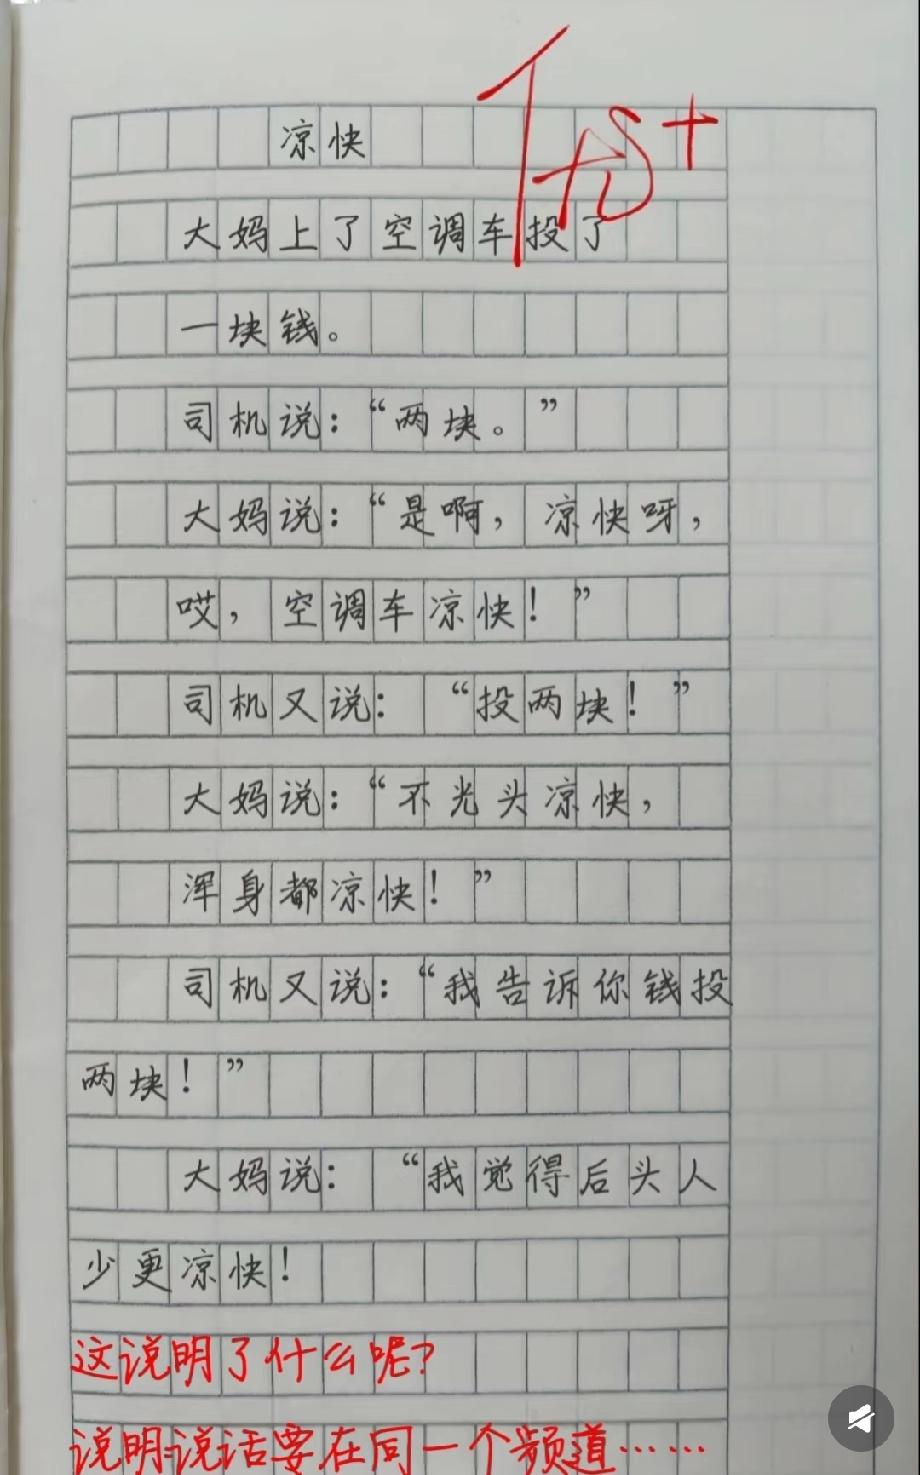 凉快
大妈上了空调车投了
一块钱。
司机说：“两块。”
大妈说：“是啊，凉快呀，
哎，空调车凉快！”
司机又说：“投两块！”
大妈说：“不光头凉快，
浑身都凉快！”
司机又说：“我告诉你钱投
两块！”
大妈说：“我觉得后头人
少更凉快！
这说明了什么呢？
说明：说话要在同一个频道……